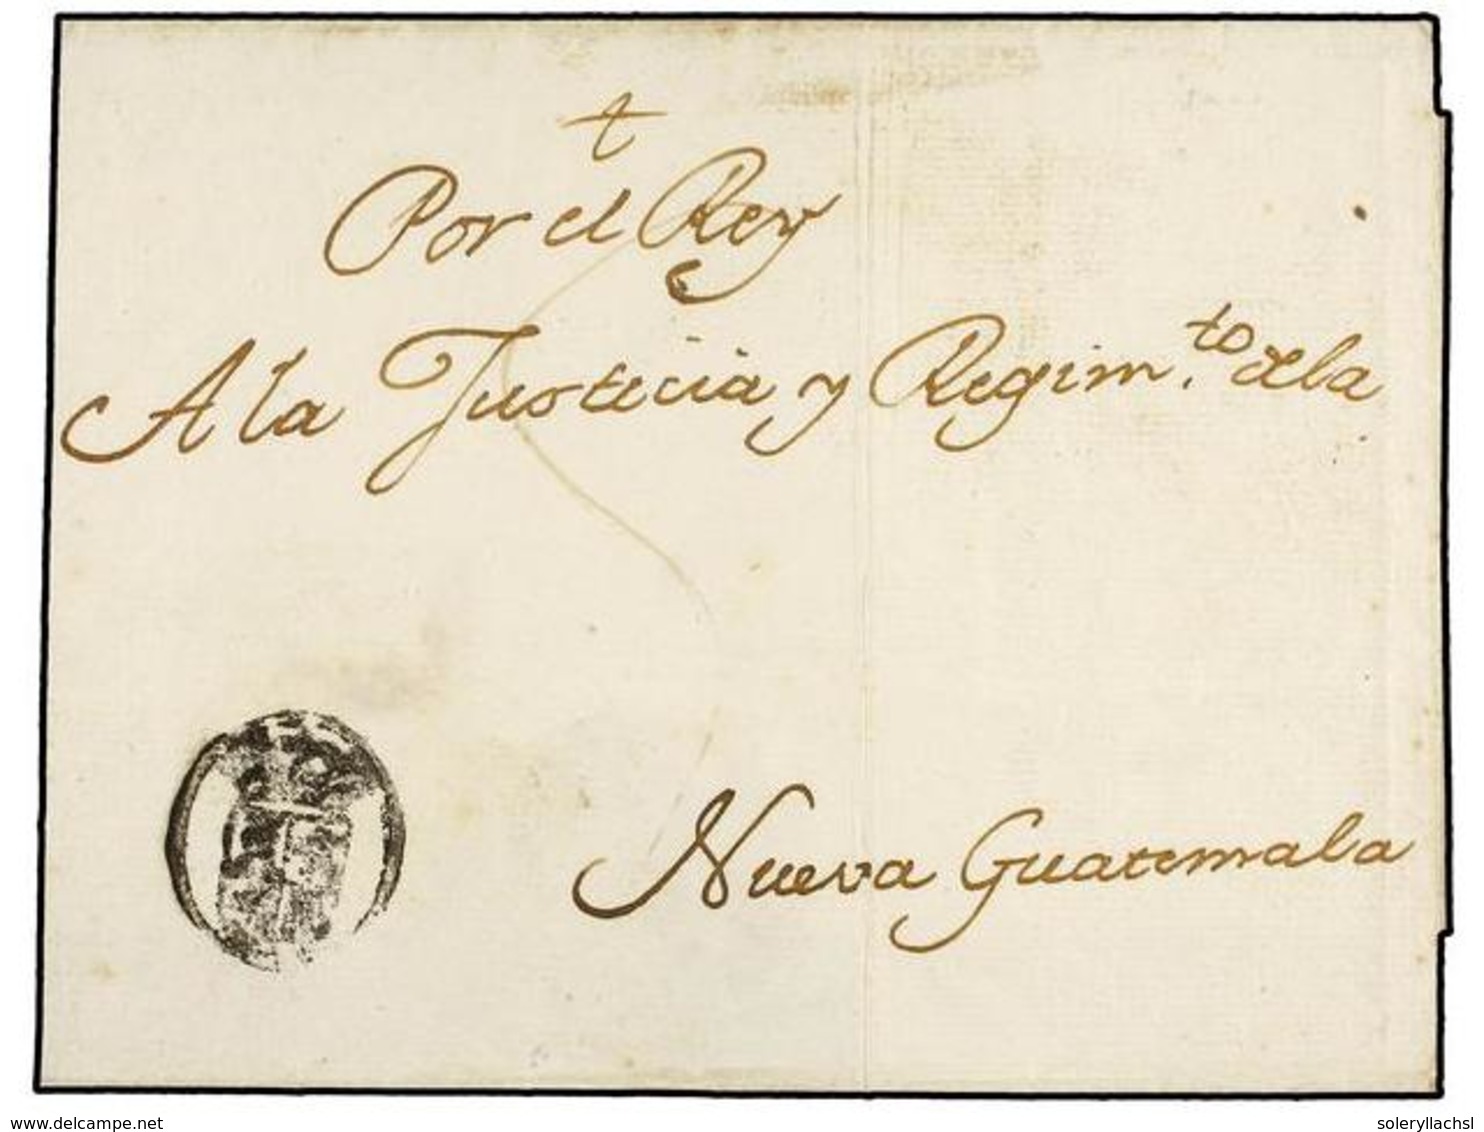 †
Por el Rey
A la Justicia y Regim.to de la
Nueva Guatemala
delcampe.net
soleryllachsl